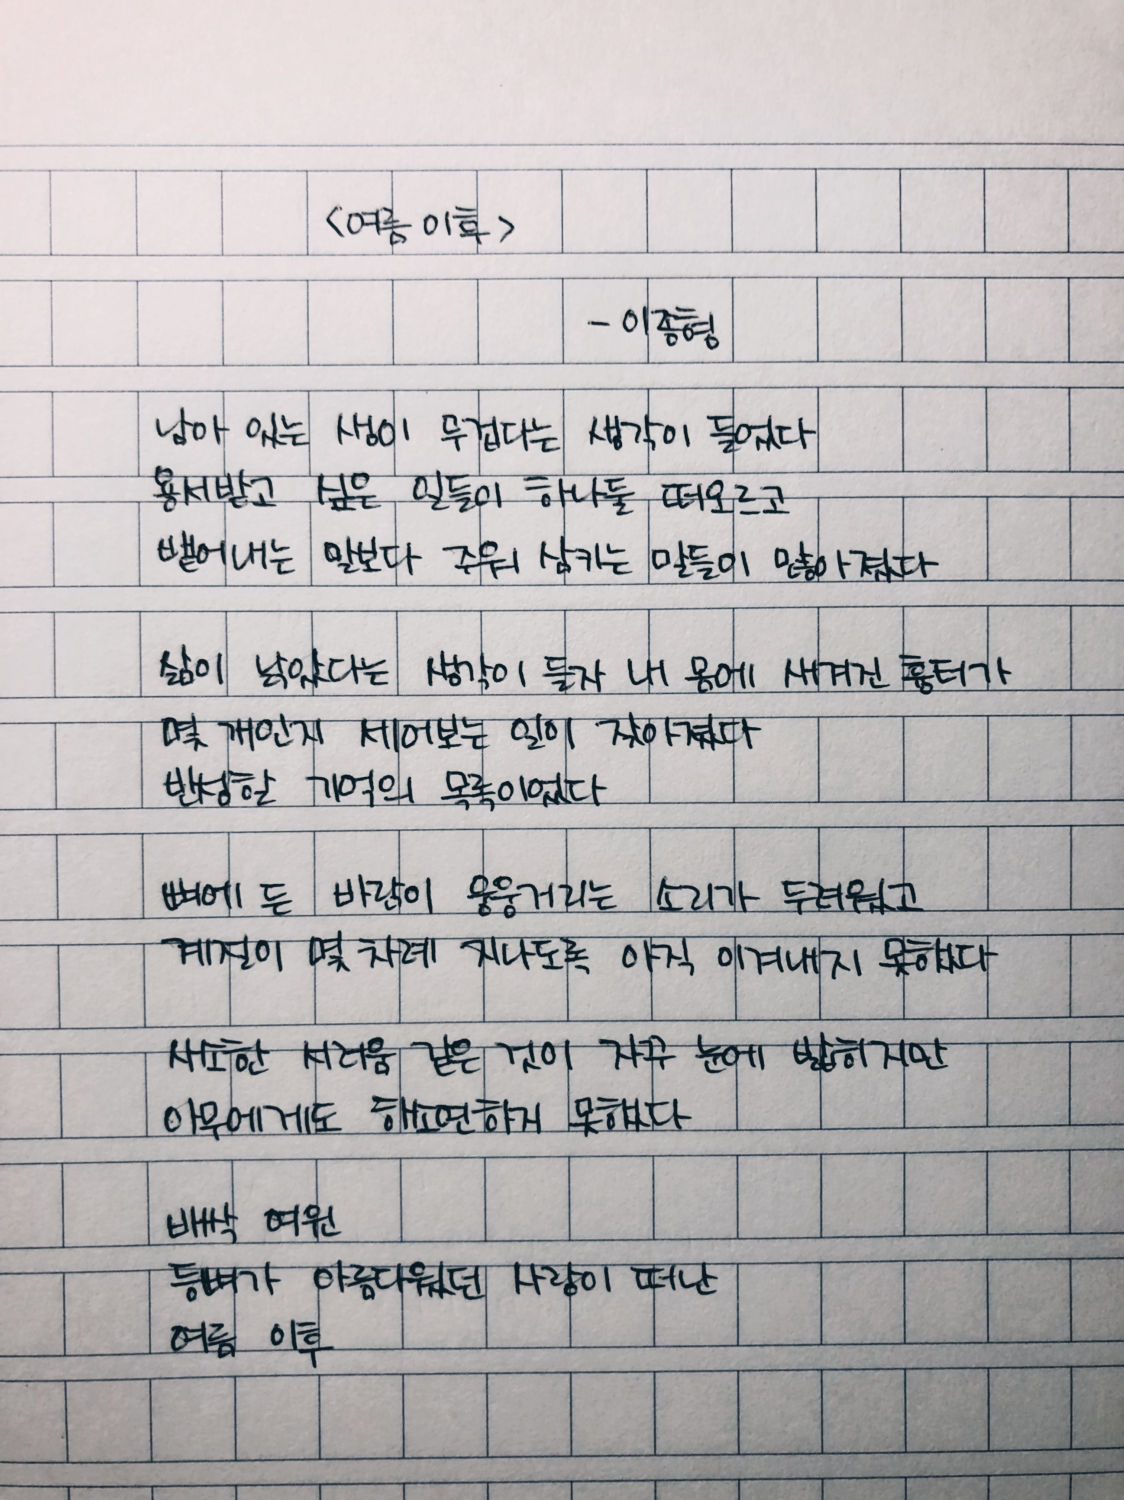 <여름 이후>
- 이종형
남아 있는 생이 무겁다는 생각이 들었다
용서받고 싶은 일들이 하나둘 떠오르고
뱉어내는 말보다 주워 삼키는 말들이 많아졌다
삶이 낡았다는 생각이 들자 내 몸에 새겨진 흉터가
몇 개인지 세어보는 일이 잦아졌다
반성할 기억의 목록이었다
뼈에 든 바람이 웅웅거리는 소리가 두려웠고
계절이 몇 차례 지나도록 아직 이겨내지 못했다
사소한 서러움 같은 것이 자꾸 눈에 밟히지만
아무에게도 하소연하지 못했다
바싹 여윈
등뼈가 아름다웠던 사랑이 떠난
여름 이후